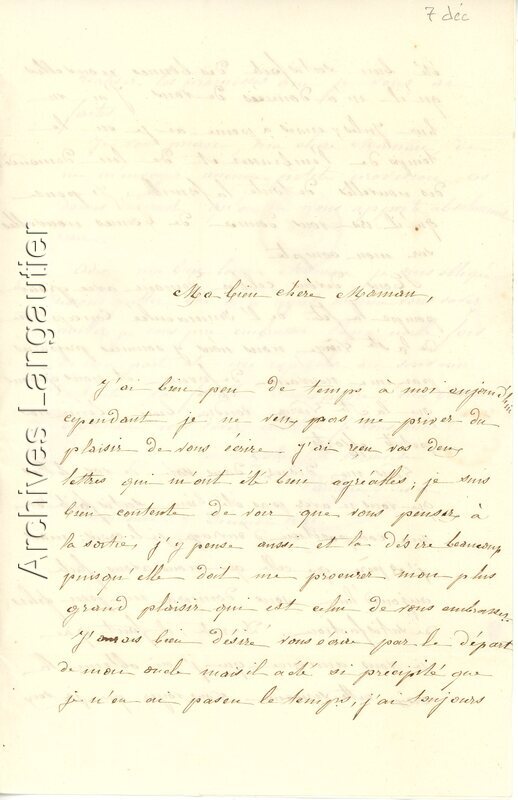 7 déc
Archives Langautier
Ma bien chère Maman,
J'ai bien peu de temps à moi aujourd'hui
cependant je ne veux pas me priver du
plaisir de vous écrire J'ai reçu vos deux
lettres qui m'ont été bien agréables; je suis
bien contente de voir que vous pensez à
la sortie, j'y pense aussi et la désire beaucoup
puisqu'elle doit me procurer mon plus
grand plaisir qui est celui de vous embrasser.
J'aurais bien désiré vous écrire par le départ
de mon oncle mais il a été si précipité que
je n'en ai pas eu le temps, j'ai toujours